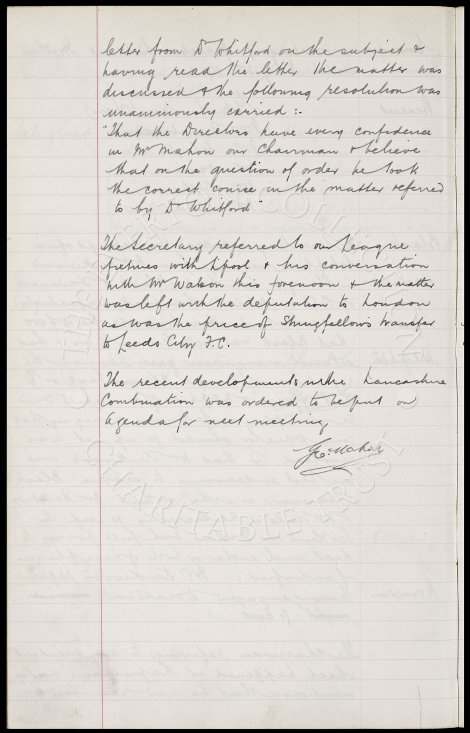 letter from Dr Whitford on the subject &
having read the letter the matter was
discussed & the following resolution was
unanimously carried :-
"That the Directors have every confidence
in Mr Mahon our Chairman & believe
that on the question of order he took
the correct course in the matter referred
to by Dr Whitford"
The Secretary referred to our League
fixtures with L'pool & his conversation
with Mr Watson this forenoon & the matter
was left with the deputation to London
as was the price of Stringfellows transfer
to Leeds City F.C.
The recent developments in the Lancashire
Combination was ordered to be put on
Agenda for next meeting
Geo. Mahon
CHARITABLE TRUST